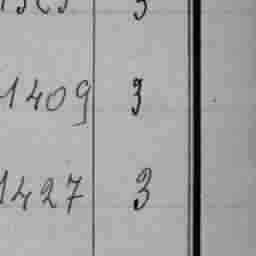 1409 3
1427 3